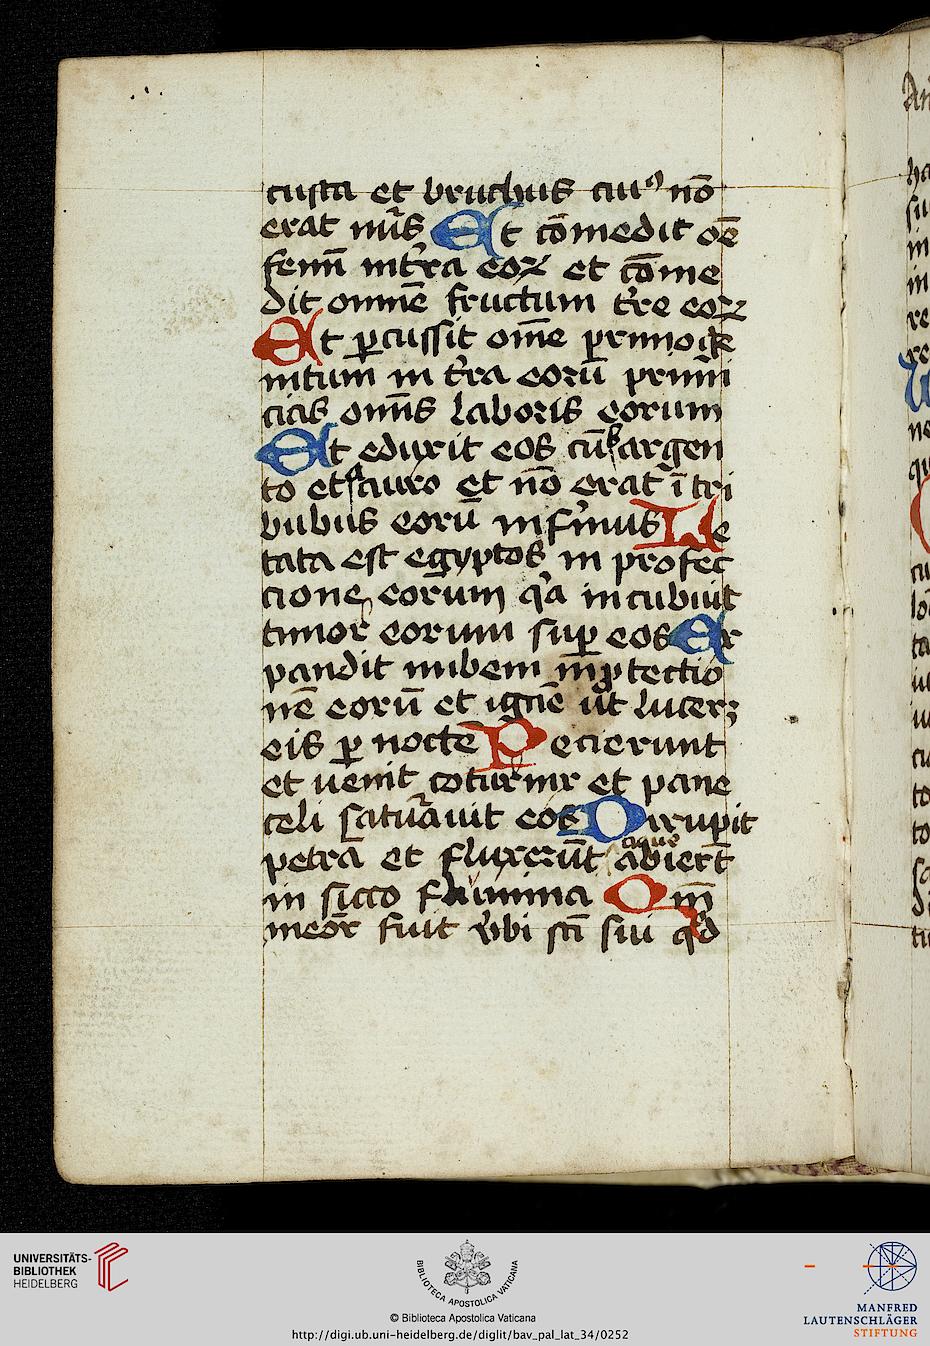 custa et bruchus cuiꝰ nō
erat nūs Et cōmedit oē
fenū in t'ra eoꝝ et cōme
dit omnē fructum t're eoꝝ
Et ꝑcussit om̄e primoge
nitum in t'ra eorū primi
cias om̄s laboris eorum
Et eduxit eos cū argen
to et auro et nō erat ī tri
bubus eorū infirmus Le
tata est egyptos in profec
cione eorum q'a incubuit
timor eorum suꝑ eos Ex
pandit nubem in ꝓtectio
nē eorū et ignē ut lucerꝫ
eis ꝑ noctē Pecierunt
et uenit coturnix et pane
celi saturauit eos Dirrupit
aque
petrā et fluxerūt abierūt
in sicco flumina Qm̄
meōr fuit v'bi sc̄i sui q'd
UNIVERSITÄTS-
BIBLIOTHEK
HEIDELBERG
BIBLIOTECA APOSTOLICA VATICANA
© Biblioteca Apostolica Vaticana
http://digi.ub.uni-heidelberg.de/diglit/bav_pal_lat_34/0252
MANFRED
LAUTENSCHLÄGER
STIFTUNG